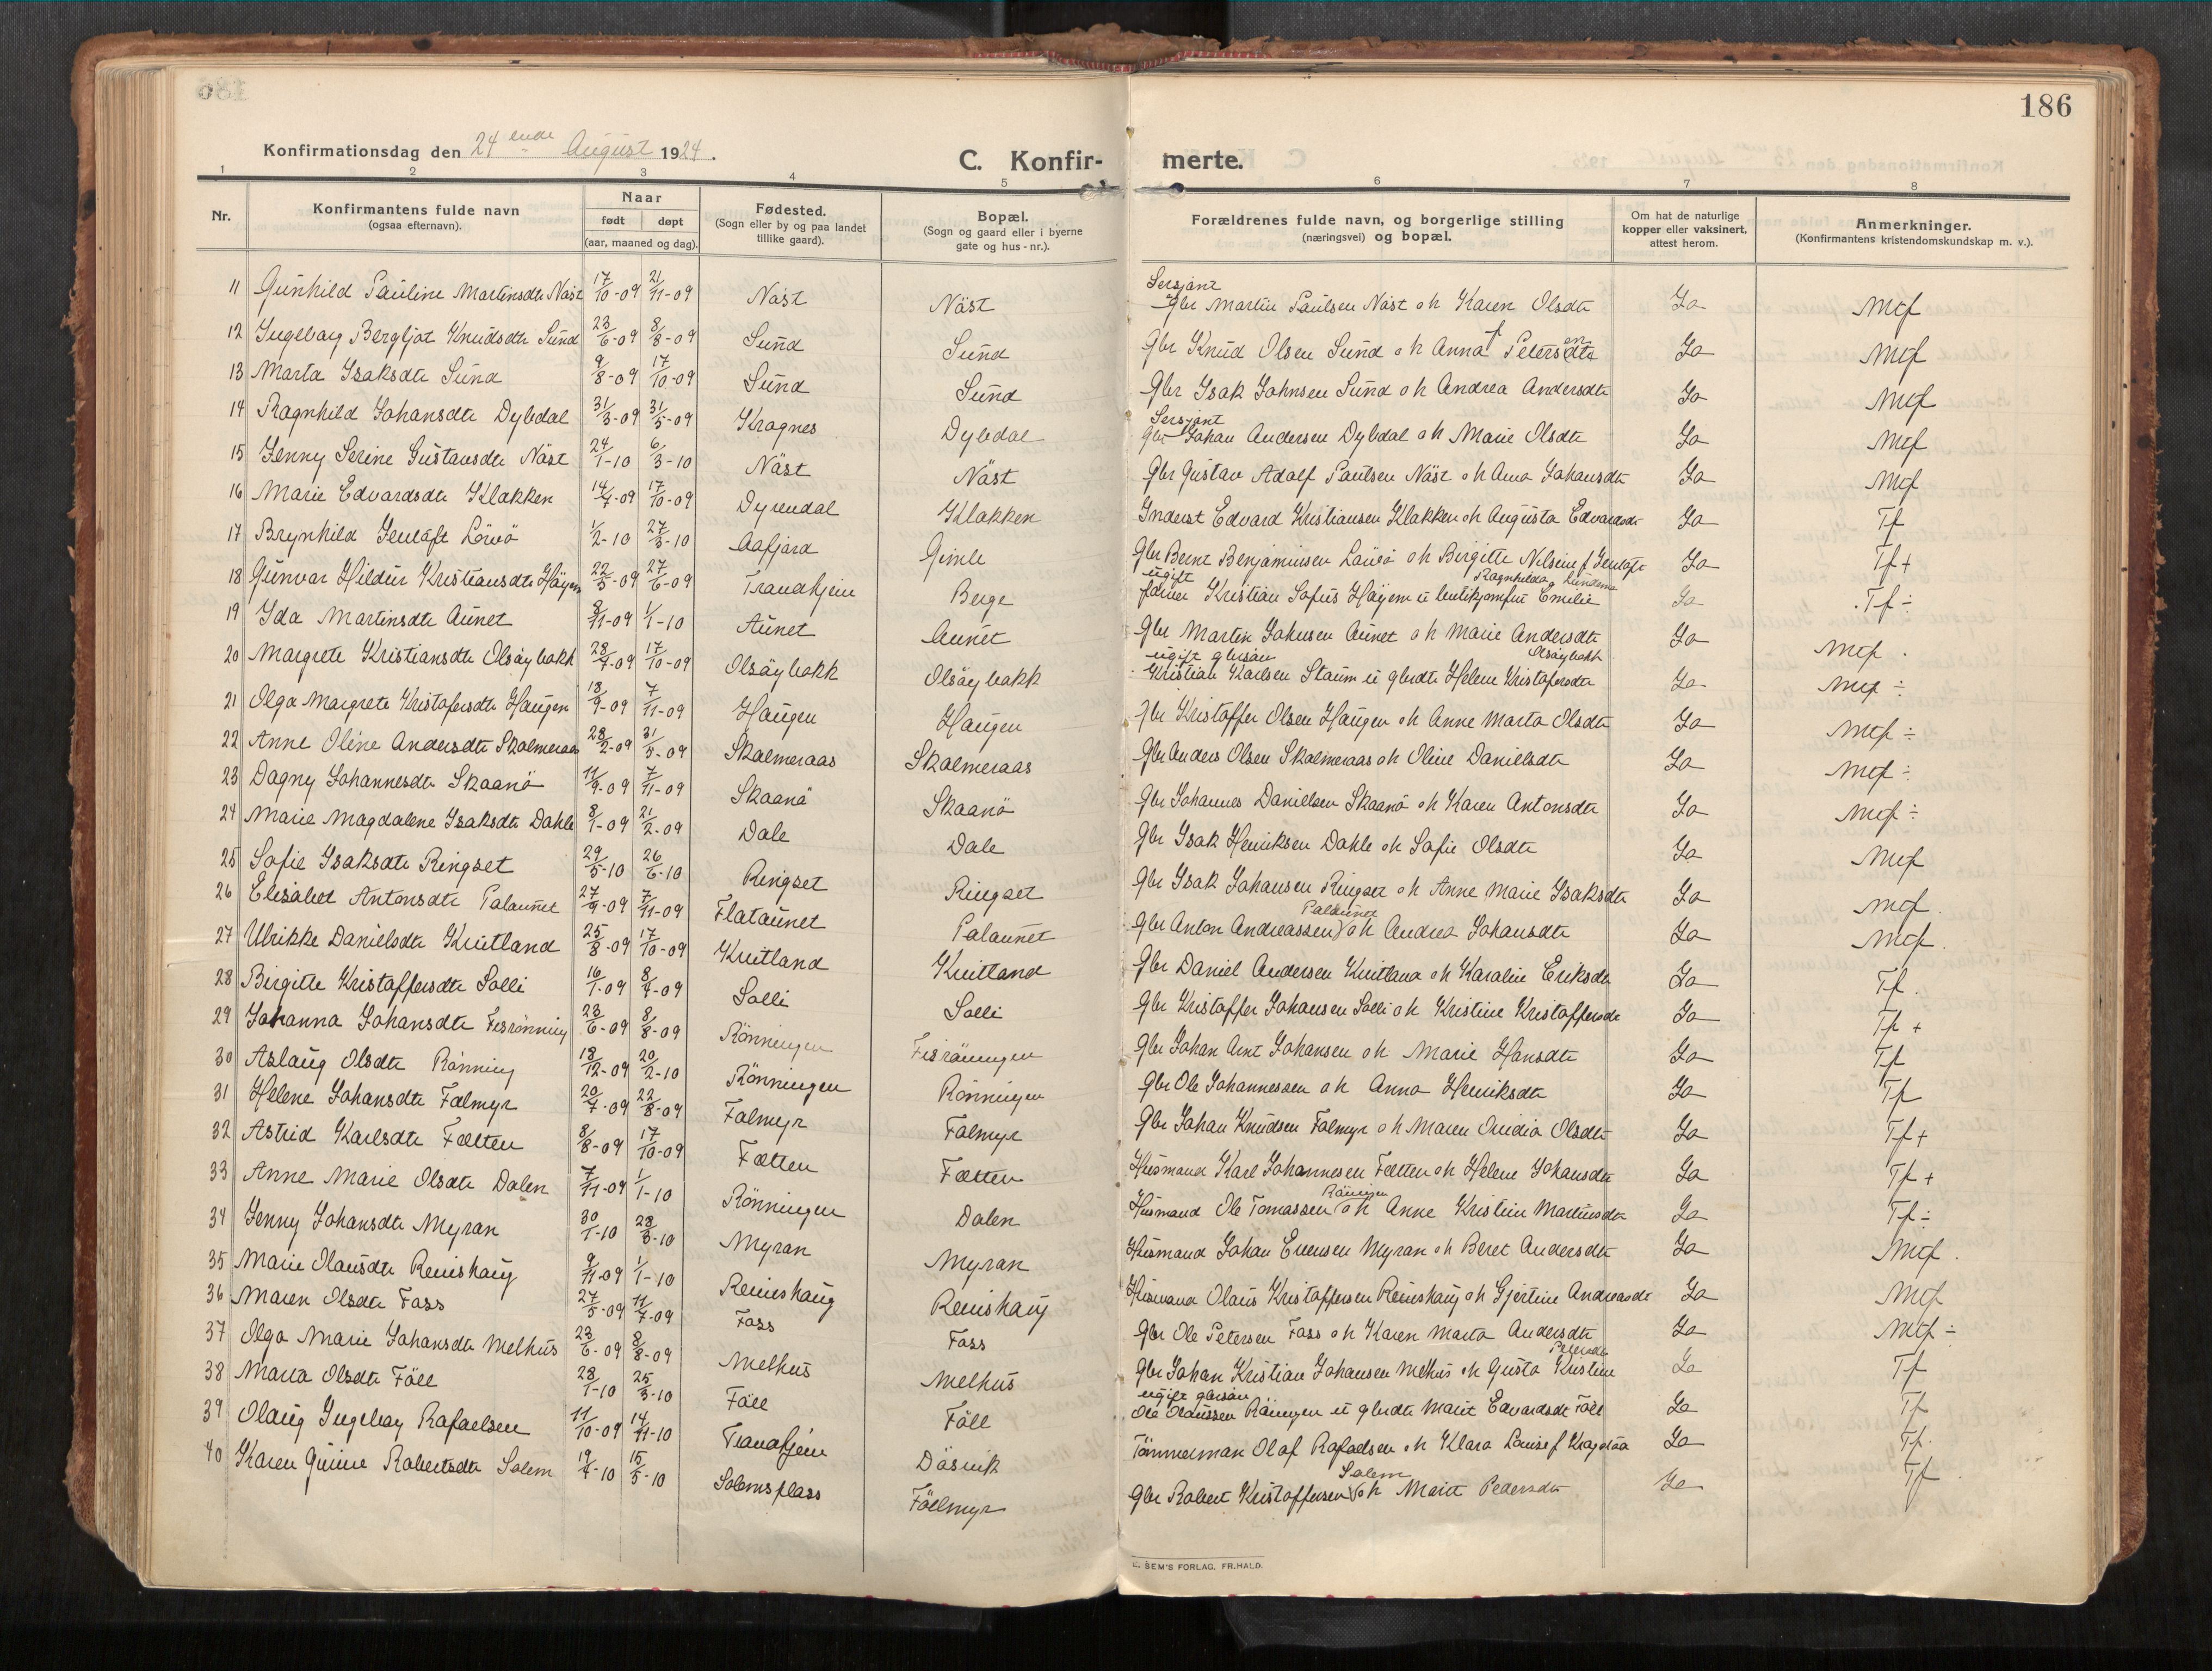 186
Konfirmationsdag den 24 ende August 1924.
C. Konfir- merte.
1 2 3 4 5 6 7 8
Nr. Konfirmantens fulde navn (ogsaa efternavn). Naar født døpt (aar, maaned og dag). Fødested. (Sogn eller by og paa landet tillike gaard). Bopæl. (Sogn og gaard eller i byerne gate og hus-nr.). Forældrenes fulde navn, og borgerlige stilling (næringsvei) og bopæl. Om hat de naturlige kopper eller vaksinert, attest herom. Anmerkninger. (Konfirmantens kristendomskundskap m. v.).
11 Gunhild Pauline Martinsdtr Näst 17/10-09 21/11-09 Näst Näst Sersjant Gbr Martin Paulsen Näst o h Karen Olsdtr Ja Mcf
12 Ingeborg Bergljot Knudsdtr Sund 23/6-09 8/8-09 Sund Sund Gbr Knud Olsen Sund o h Anna f Petersen Ja Mcf
13 Marta Isaksdtr Sund 9/8-09 17/10-09 Sund Sund Gbr Isak Johnsen Sund o h Andrea Andersdtr Ja Mcf
14 Ragnhild Johansdtr Dybdal 31/3-09 31/5-09 Kragnes Dybdal Sersjant Gbr Johan Andersen Dybdal o h Marie Olsdtr Ja Mcf
15 Jenny Serine Gustavsdtr Näst 24/1-10 6/3-10 Näst Näst Gbr Gustav Adolf Paulsen Näst o h Anna Johansdtr Ja Mcf
16 Marie Edvardsdtr Klakken 14/7-09 17/10-09 Dyrendal Klakken Inderst Edvard Kristiansen Klakken o h Augusta Edvardsdtr Ja Tf
17 Brynhild Jentoft 1/2-10 27/3-10 Aafjord Gimle Gbr Bernt Benjaminsen o h Birgitte Nilsine f Jentoft Ja Tf+
18 Gunvor Hildur Kristiansdtr Höyem 22/5-09 27/6-09 Trondhjem Berge ugift Kristian Sofus Höyem u butikjomfru Emilie Ragnhilda Ja Tf ÷
19 Ida Martinsdtr Aunet 8/11-09 1/1-10 Aunet Aunet Gbr Martin Johnsen Aunet o h Marie Andersdtr Ja Mcf
20 Margrete Kristiansdtr Olsöybakk 28/7-09 17/10-09 Olsöybakk Olsöybakk ugift gbrsön Kristian Karlsen Staum u gbrdtr Helene Kristofersdtr Olsöybakk Ja Mcf ÷
21 Olga Margrete Kristofersdtr Haugen 18/9-09 7/11-09 Haugen Haugen Gbr Kristoffer Olsen Haugen o h Anne Marta Olsdtr Ja Mcf ÷
22 Anne Oline Andersdtr Skalmeraas 28/2-09 31/5-09 Skalmeraas Skalmeraas Gbr Anders Olsen Skalmeraas o h Oline Danielsdtr Ja Mcf ÷
23 Dagny Johannesdtr Skaanö 11/9-09 7/11-09 Skaanö Skaanö Gbr Johannes Danielsen Skaanö o h Karen Antonsdtr Ja Mcf ÷
24 Marie Magdalene Isaksdtr Dahle 8/1-09 21/2-09 Dale Dale Gbr Isak Henriksen Dahle o h Sofie Olsdtr Ja Mcf
25 Sofie Isaksdtr Ringset 29/5-10 26/6-10 Ringset Ringset Gbr Isak Johansen Ringset o h Anne Marie Isaksdtr Ja Mcf
26 Elisabet Antonsdtr Palaunet 27/9-09 7/11-09 Flataunet Palaunet Gbr Anton Andreassen Palaunet o h Andrea Johansdtr Ja Mcf
27 Ulrikke Danielsdtr Kvitland 25/8-09 17/10-09 Kvitland Kvitland Gbr Daniel Andersen Kvitland o h Karoline Eriksdtr Ja Tf
28 Birgitte Kristoffersdtr Solli 16/1-09 8/4-09 Solli Solli Gbr Kristoffer Johansen Solli o h Kristine Kristoffersdtr Ja Tf +
29 Johanna Johansdtr Fesrönning 23/6-09 8/8-09 Rönningen Fesrönningen Gbr Johan Arnt Johansen o h Marie Hansdtr Ja Tf
30 Aslaug Olsdtr Rönning 18/12-09 20/2-10 Rönningen Rönningen Gbr Ole Johannessen o h Anna Henriksdtr Ja Tf
31 Helene Johansdtr Falmyr 20/7-09 22/8-09 Falmyr Falmyr Gbr Johan Knudsen Falmyr o h Maren Ovidia Olsdtr Ja Tf+
32 Astrid Karlsdtr Fætten 8/8-09 17/10-09 Fætten Fætten Husmand Karl Johannesen Fætten o h Helene Johansdtr Ja Tf +
33 Anne Marie Olsdtr Dalen 7/11-09 1/1-10 Rönningen Dalen Husmand Ole Tomassen o h Anne Kristine Martinsdtr Ja Tf ÷
34 Jenny Johansdtr Myran 30/1-10 28/3-10 Myran Myran Husmand Johan Evensen Myran o h Beret Andersdtr Ja Mcf
35 Marie Olausdtr Reinshaug 9/11-09 1/1-10 Reinshaug Reinshaug Husmand Olaus Kristoffersen Reinshaug o h Gjertine Andreasdtr Ja Mcf
36 Maren Olsdtr Foss 27/5-09 11/7-09 Foss Foss Gbr Ole Petersen Foss o h Karen Marta Andersdtr Ja Mcf ÷
37 Olga Marie Johansdtr Melhus 23/6-09 8/8-09 Melhus Melhus Gbr Johan Kristian Johansen Melhus o h Gusta Kristine Petersdtr Ja Tf
38 Marta Olsdtr Föll 28/1-10 25/3-10 Föll Föll ugift gbrsön Ole Olaussen Röningen u gbrdtr Marit Edvardsdtr Föll Ja Tf
39 Olaug Ingeborg Rafaelsen 11/10-09 14/11-10 Trondhjem Dösvik Tömmerman Olaf Rafaelsen o h Klara Louise f Ja Tf
40 Karen Robertsdtr Solem 19/4-10 15/5-10 Solemsplass Föllmyr Gbr Robert Kristoffersen Solem o h Marit Pedersdtr Ja Tf
E. SEM'S FORLAG, FR.HALD.